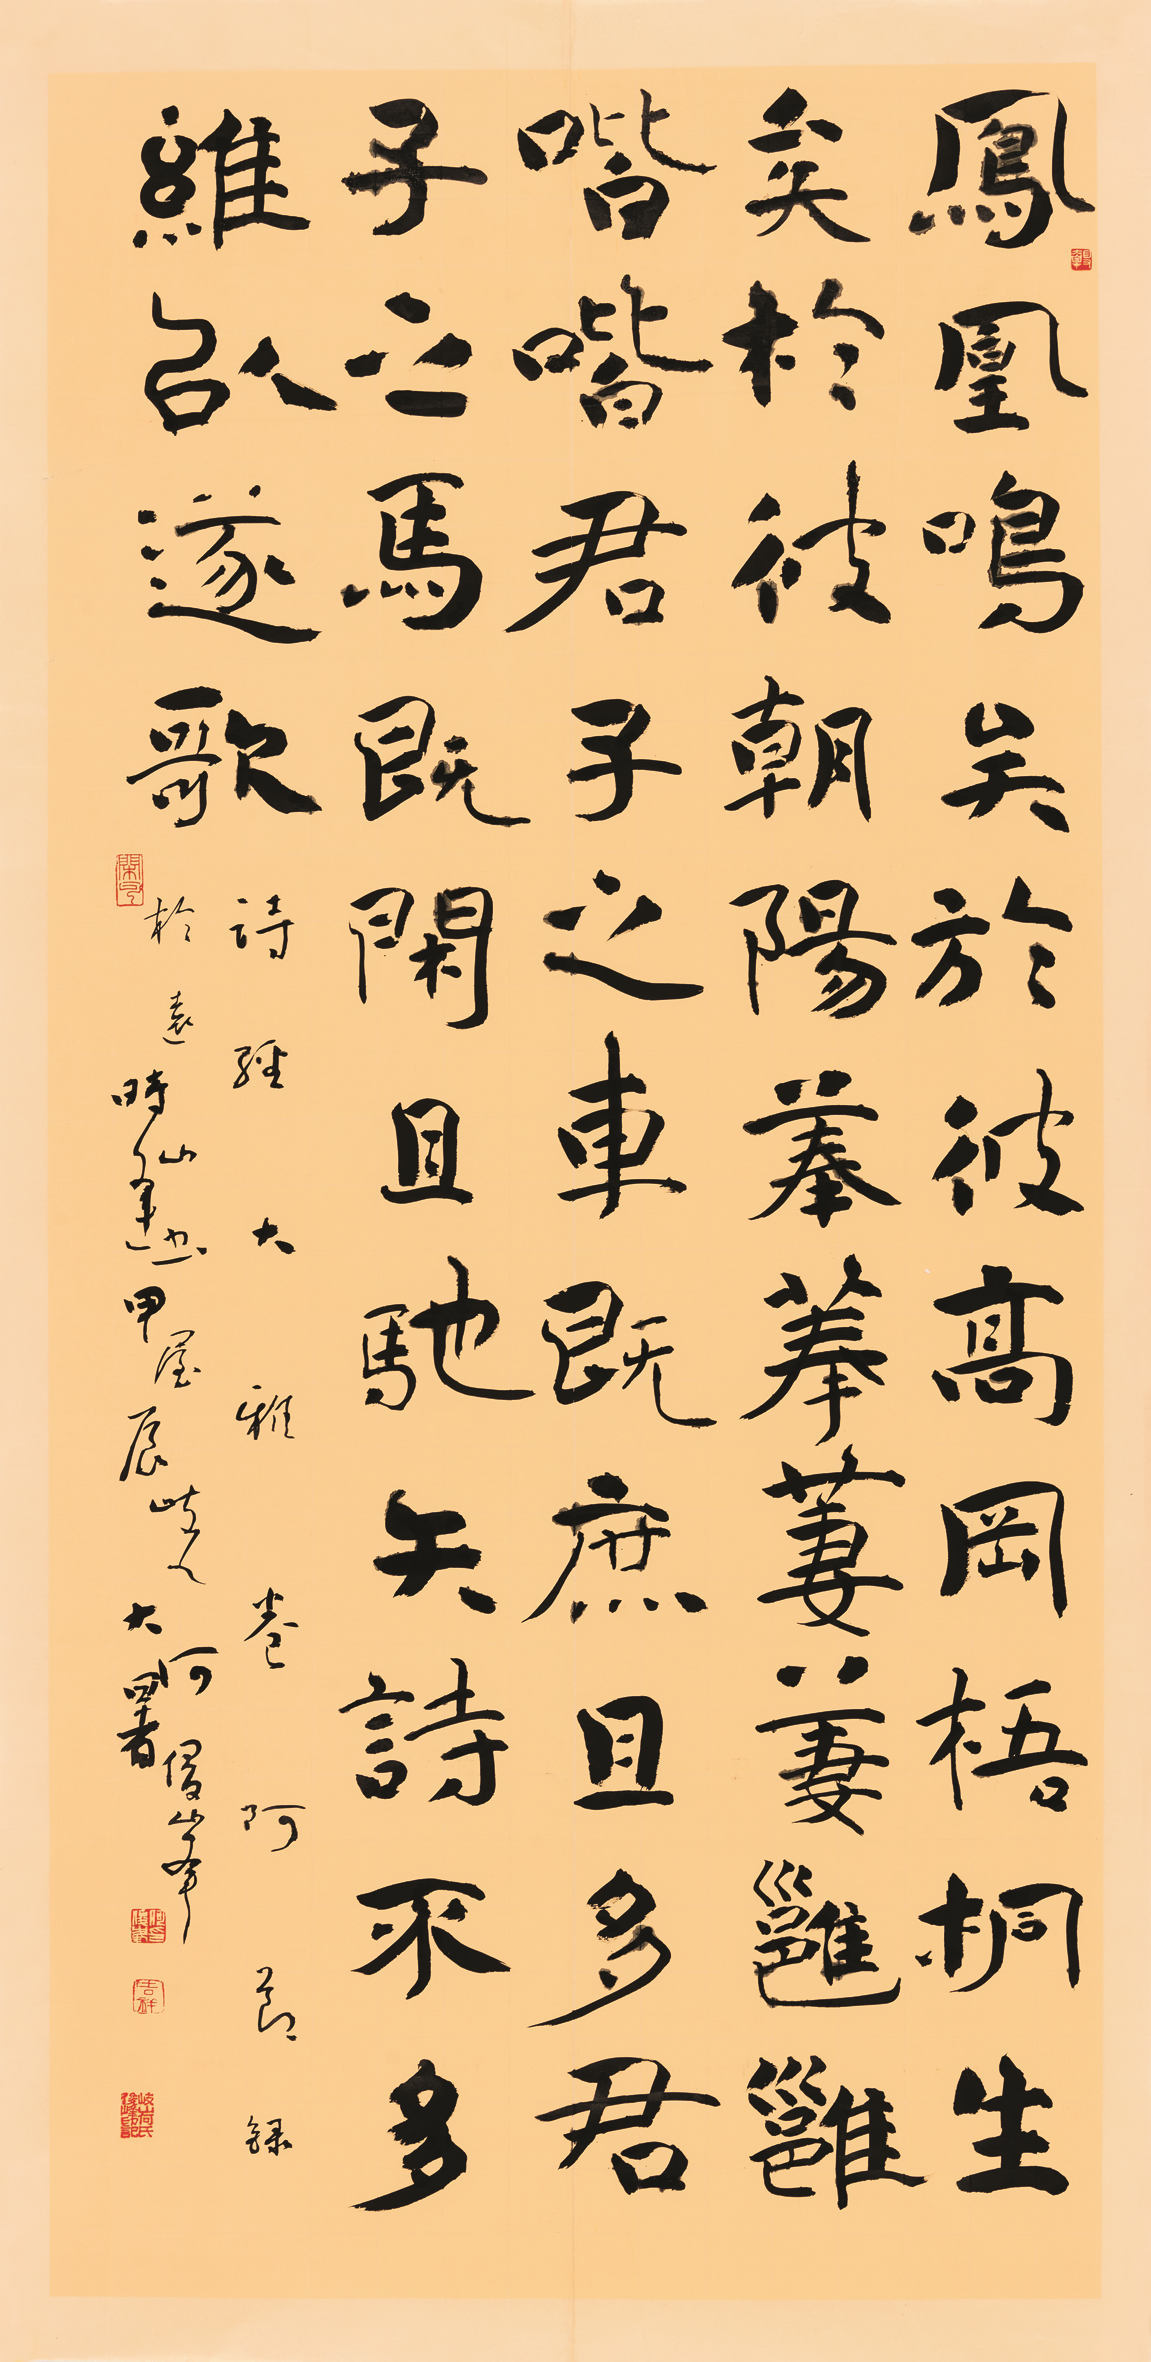 鳳凰鳴矣於彼高岡梧桐生
矣於彼朝陽菶菶萋萋雝雝
喈喈君子之車既庶且多君
子之馬既閑且馳矢詩不多
維以遂歌
詩經大雅卷阿節錄
於遠山屋岐人何俊峰
時甲辰大暑
吉祥